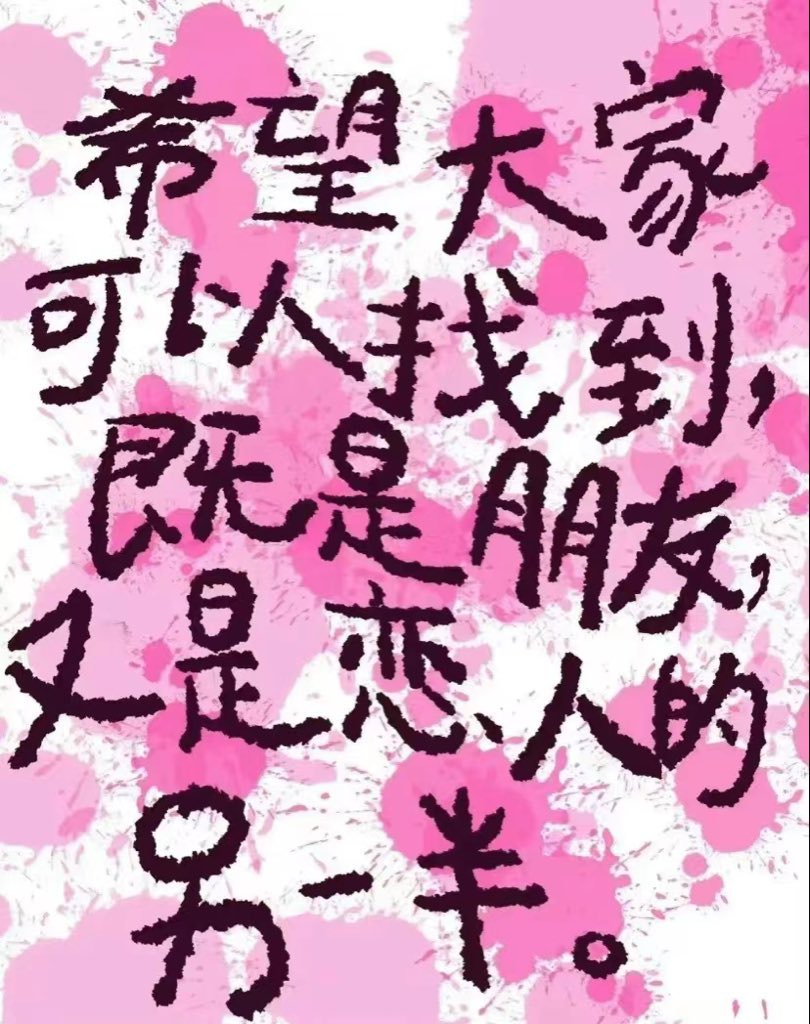 希望大家
可以找到，
既是朋友，
又是恋人的
另一半。